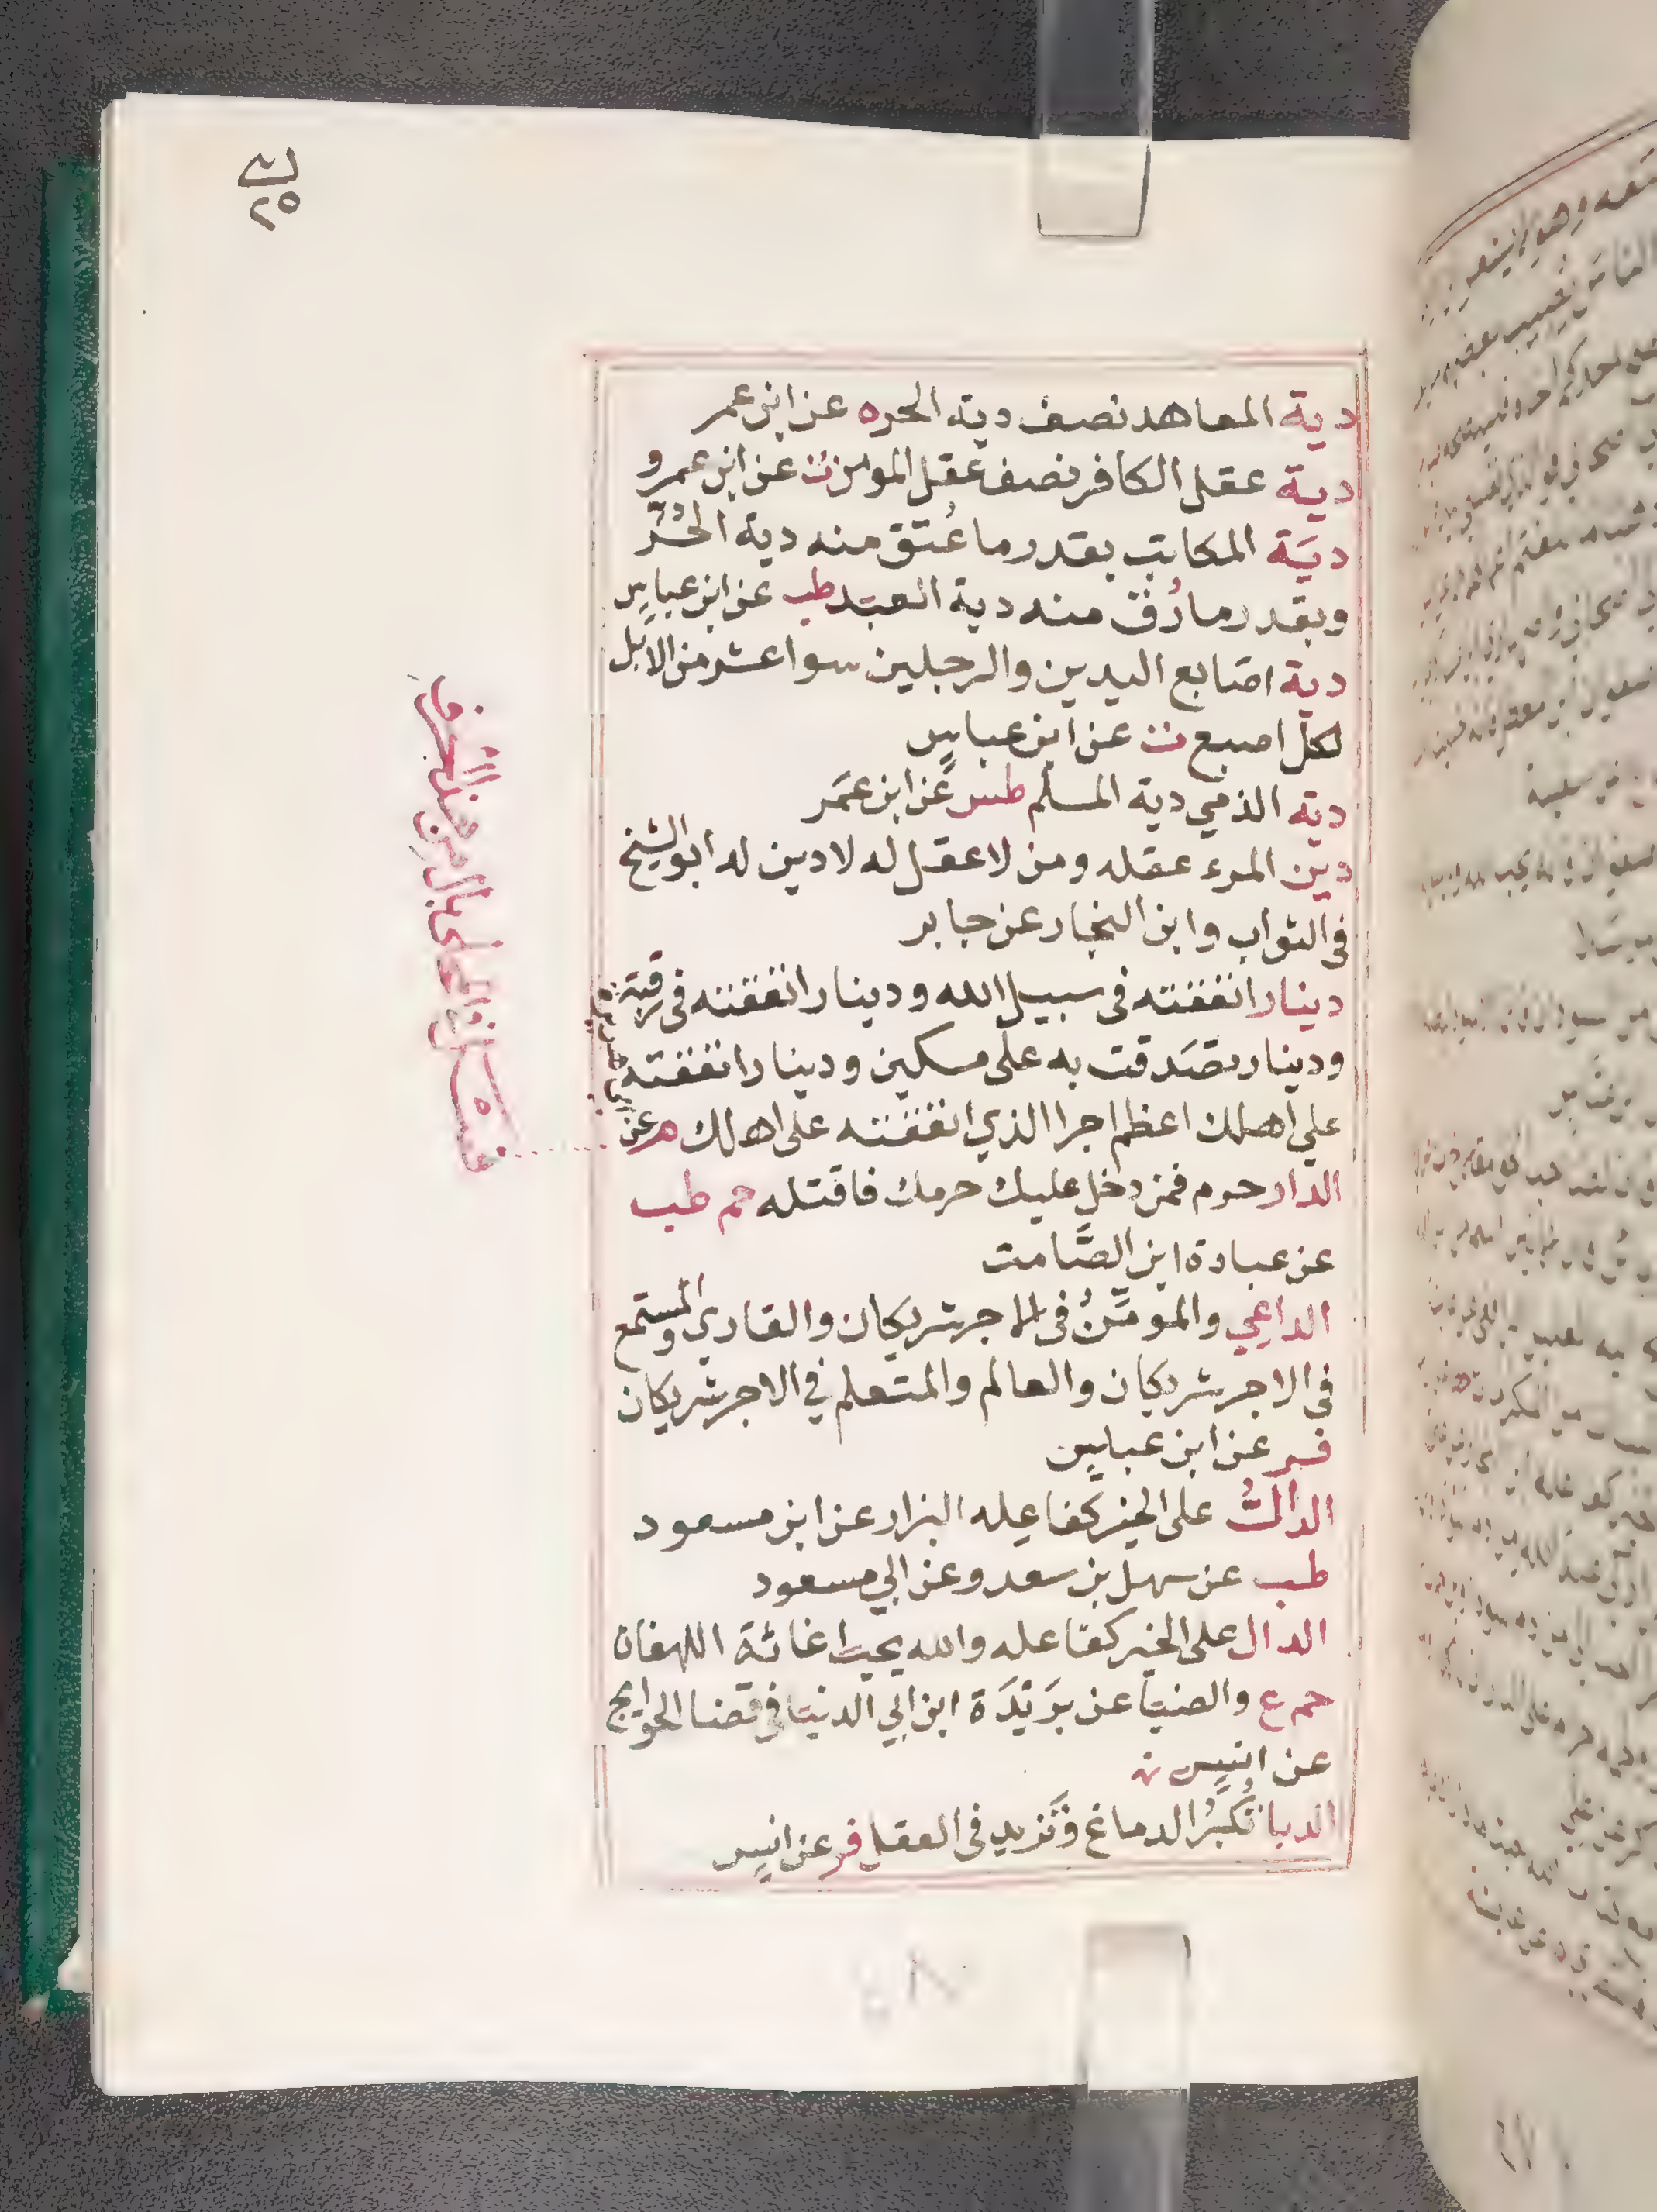 دية المعاهد نصف دية الحره عن ابن عمر
دية عقل الكافر نصف عقل المومن ت عن ابن عمرو
ديَة المكاتب بقدر ما عُتق منه دية الحُرّ
وبقدر ما رُقّ منه دية العبد طب عن ابن عباس
دية اصابع اليدين والرجلين سوا عشر من الابل
لكل اصبع ت عن ابن عباس
دية الذمي دية المسلم طس عن ابن عمَر
دين المرء عقله ومن لا عقل له لا دين له ابو الشيخ
فى الثواب وابن النجار عن جابر
دينار انفقته فى سبيل الله ودينار انفقته فى رقبة
ودينار تصَدقت به على مسكين ودينار انفقته
علي اهلك اعظم اجرا الذي انفقته على اهلك م عن
الدار حرم فمن دخل عليك حرمك فاقتله حم طب
عن عبادة ابن الصَّامت
الداعِي والمومّنُ فى الاجر شريكان والقاري والمستمع
فى الاجر شريكان والعالم والمتعلم في الاجر شريكان
فر عن ابن عباس
الدالُّ على الخير كفاعله البزار عن ابن مسعود
طب عن سهل بن سعد وعن ابي مسعود
الدال على الخير كفاعله والله يحب اغاثة اللهفان
حم ع والضيا عن بريدَة ابن ابي الدنيا فى قضا الحوايج
عن انس
الدبا تُكبّرُ الدماغ وتَزيد فى العقل فر عن انس